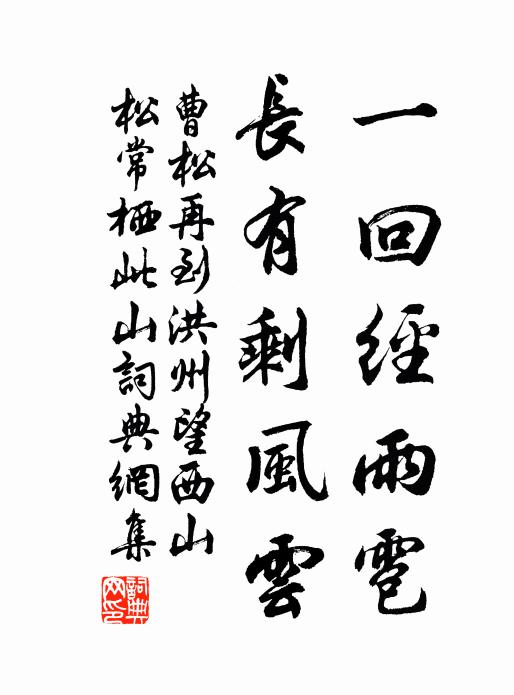 一回經雨雹
長有剩風雲
曹松再到洪州望西山
松常栖此山詞典網集
詞典网印